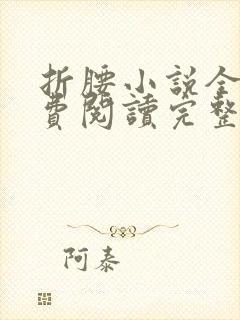 折腰小說全
費閱讀完整
阿泰